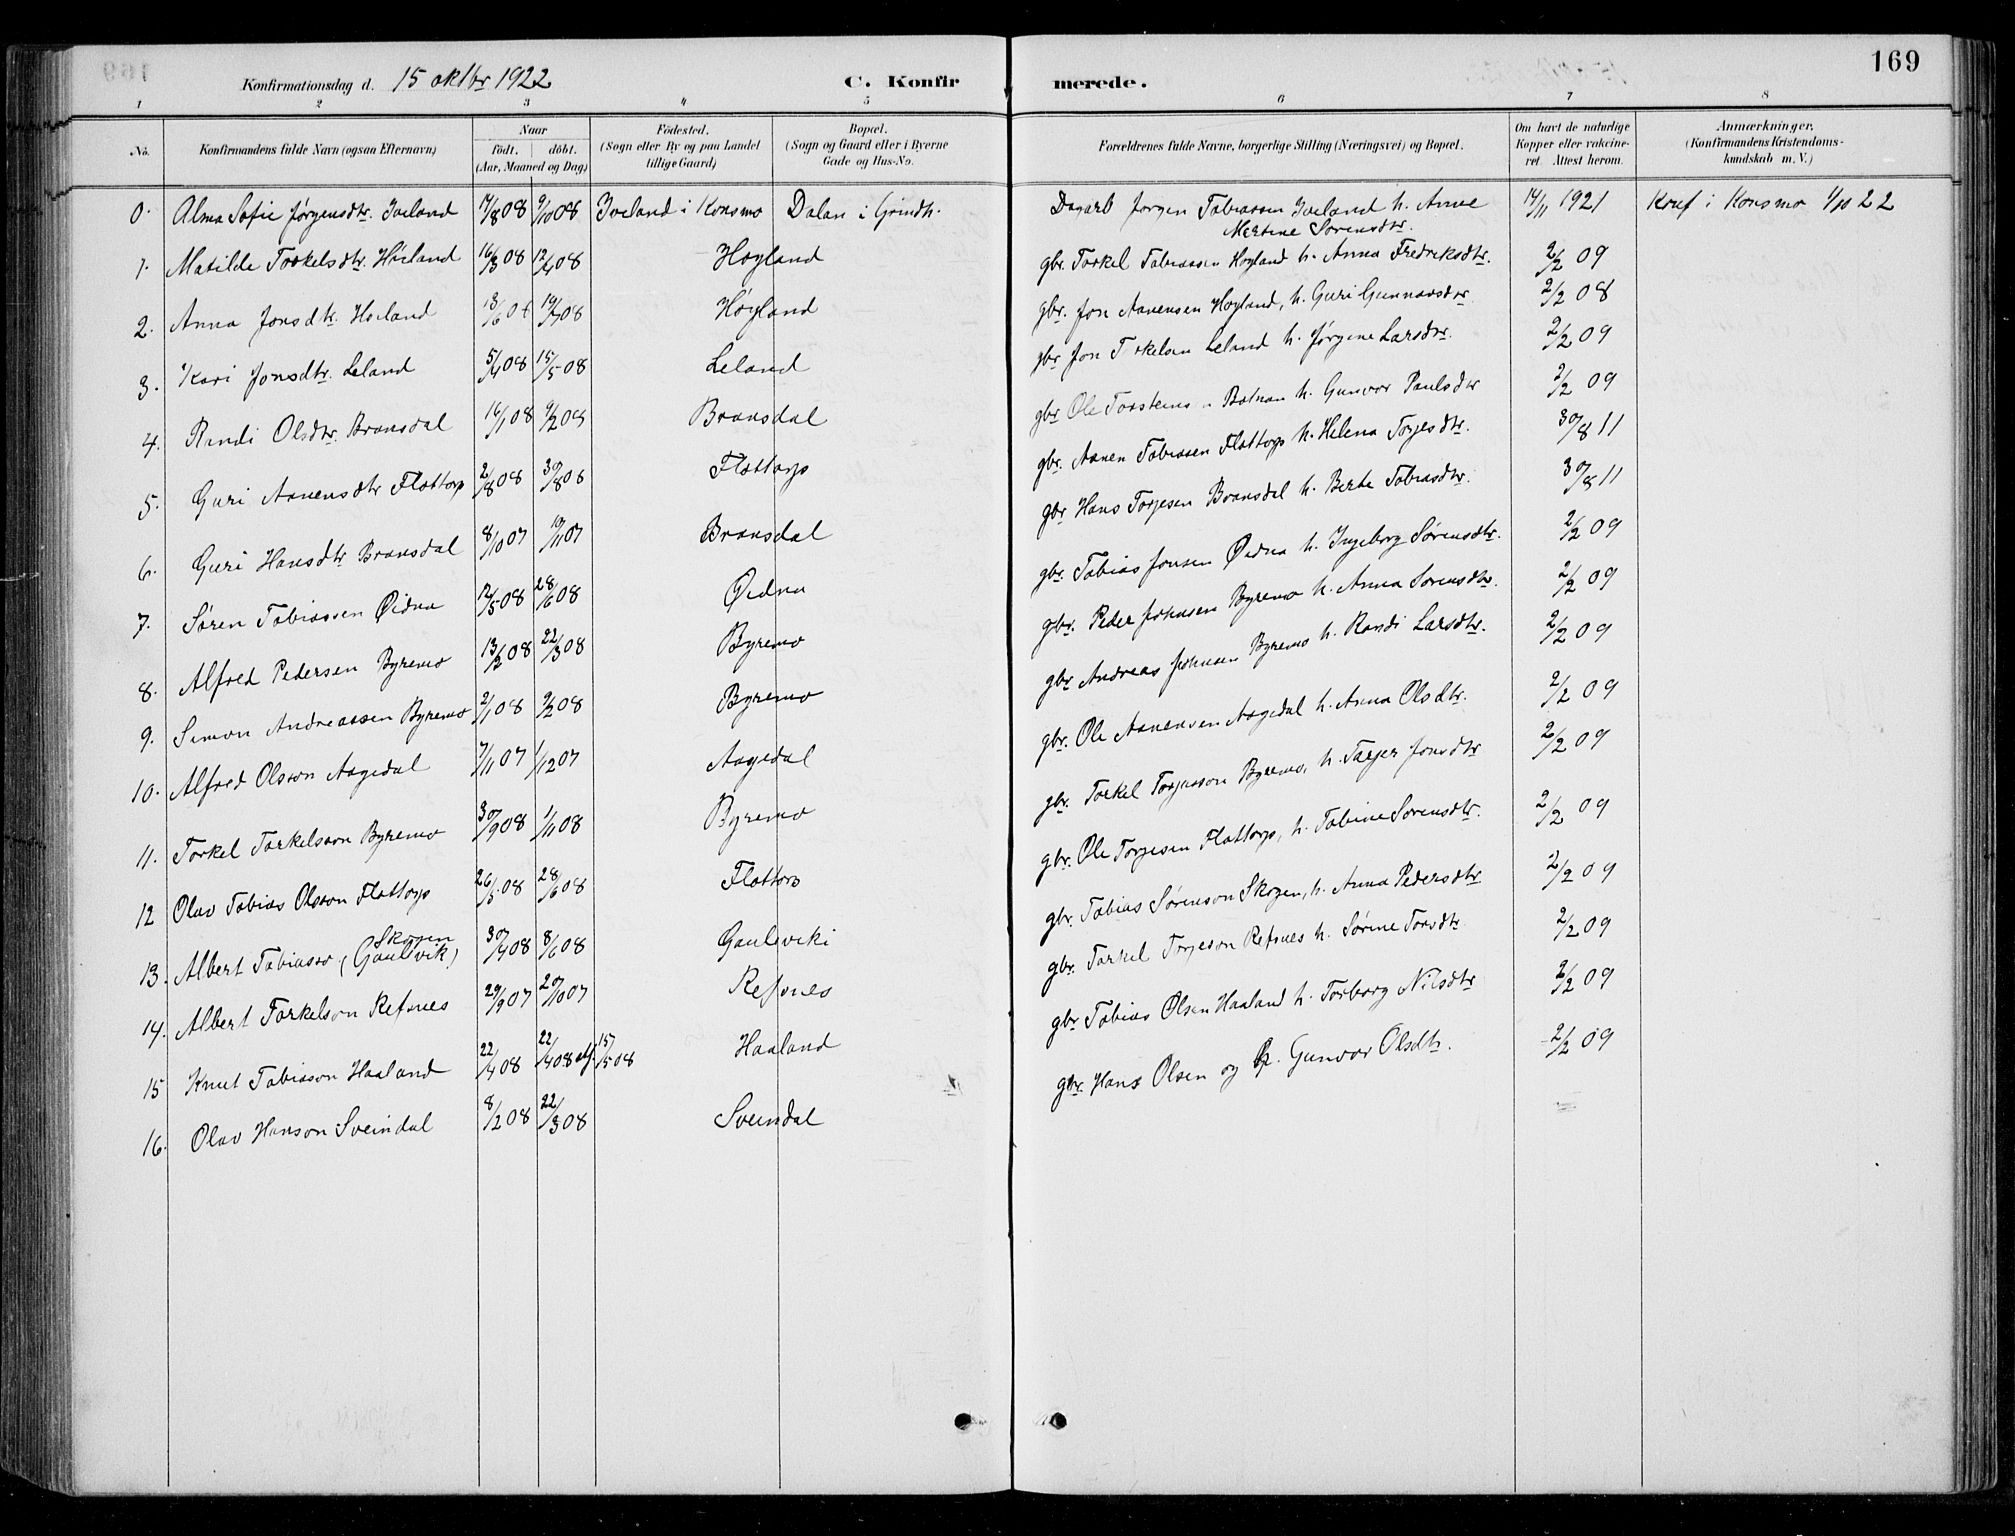 169
Konfirmationsdag d. 15 oktbr 1922 C. Konfirmerede.
1 2 3 4 5 6 7 8
No. Konfirmandens fulde Navn (ogsaa Efternavn) Naar født. døbt. (Aar, Maaned og Dag) Fødested. (Sogn eller By og paa Landet tillige Gaard) Bopæl. (Sogn og Gaard eller i Byerne Gade og Hus-No. Forældrenes fulde Navne, borgerlige Stilling (Næringsvei) og Bopæl. Om havt de naturlige Kopper eller vakcineret. Attest herom. Anmærkninger. (Konfirmandens Kristendomskundskab m. V.)
0. Alma Sofie Jørgensdtr. Iveland 14/8 08 9/10 08 Iveland i Konsmo Dalan i Grindh. Dagarb Jørgen Tobiassen Iveland h. Anne Martine Sørensdtr. 14/11 1921 Konf i Konsmo 1/10 22
1. Matilde Torkelsdtr. Høiland 16/3 08 12/4 08 Høyland gbr. Torkel Tobiassen Høyland h. Anna Fredriksdtr. 2/2 09
2. Anna Jonsdtr. Høiland 13/6 08 19/7 08 Høyland gbr. Jon Aanensen Høyland, h. Guri Gunnarsdtr 2/2 08
3. Kari Jonsdtr. Leland 5/4 08 15/5 08 Leland gbr Jon Torkelsen Leland h. Jørgine Larsdtr. 2/2 09
4. Randi Olsdtr. Bransdal 16/1 08 9/2 08 Bransdal gbr Ole Torstensen h. Gunvor Paulsdtr 2/2 09
5. Guri Aanensdtr Flottorp 2/8 08 30/8 08 Flottorp gbr. Aanen Tobiassen Flottorp h. Helena Torjesdtr. 30/8 11
6. Guri Hansdtr Bransdal 8/10 07 10/11 07 Bransdal gbr Hans Torjesen Bransdal h. Berte Tobiasdtr. 30/8 11
7. Søren Tobiassen Øidna 12/5 08 28/6 08 Øidna gbr. Tobias Jonsen Øidna h. Ingeborg Sørensdtr. 2/2 09
8. Alfred Pedersen Byremo 13/2 08 22/3 08 Byremo gbr. Peder Johnsen Byremo h. Anna Sørensdtr. 2/2 09
9. Simon Andreassen Byremo 2/1 08 9/2 08 Byremo gbr Andreas Johnsen Byremo h. Randi Larsdtr. 2/2 09
10. Alfred Olsson Aagedal 7/11 07 1/12 07 Aagedal gbr. Ole Aanensen Aagedal h. Anna Olsdtr. 2/2 09
11. Torkel Torkelsson Byremo 30/9 08 1/11 08 Byremo gbr. Torkel Torjusson Byremo, h. Taajer Jonsdtr 2/2 09
12 Olav Tobias Olsson Flottorp 26/5 08 28/6 08 Flottorp gbr. Ole Torjesen Flottorp, h. Tobine Sørensdtr. 2/2 09
13. Albert Tobiasso (Gaulevik) Skogen 30/4 08 8/6 08 Gauleviki gbr. Tobias Sørenson Skogen, h. Anna Pedersdtr 2/2 09
14. Albert Torkelson Refsnes 29/9 07 20/10 07 Refsnes gbr. Torkel Torjeson Refsnes h. Sørine Torsdtr. 2/2 09
15 Knut Tobiasson Haaland 22/4 08 22/4 08 15/5 08 Haaland gbr Tobias Olsen Haaland h. Torborg Nilsdtr 2/2 09
16. Olav Hanson Sveindal 8/2 08 22/3 08 Sveindal gbr. Hans Olsen og h. Gunvor Olsdtr. 2/2 09